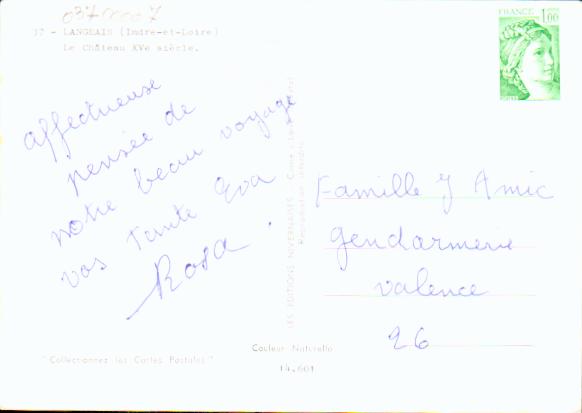 03700007
37 - LANGEAIS (Indre-et-Loire)
Le Château XVe siècle.
FRANCE 1,00
affectueuse
pensée de
notre beau voyage
vos Tante Eva
Rosa.
LES EDITIONS NIVERNAISES
Reproduction interdite
Famille J Amic
gendarmerie
Valence
26
Couleur Naturelle
"Collectionnez les Cartes Postales"
14.601